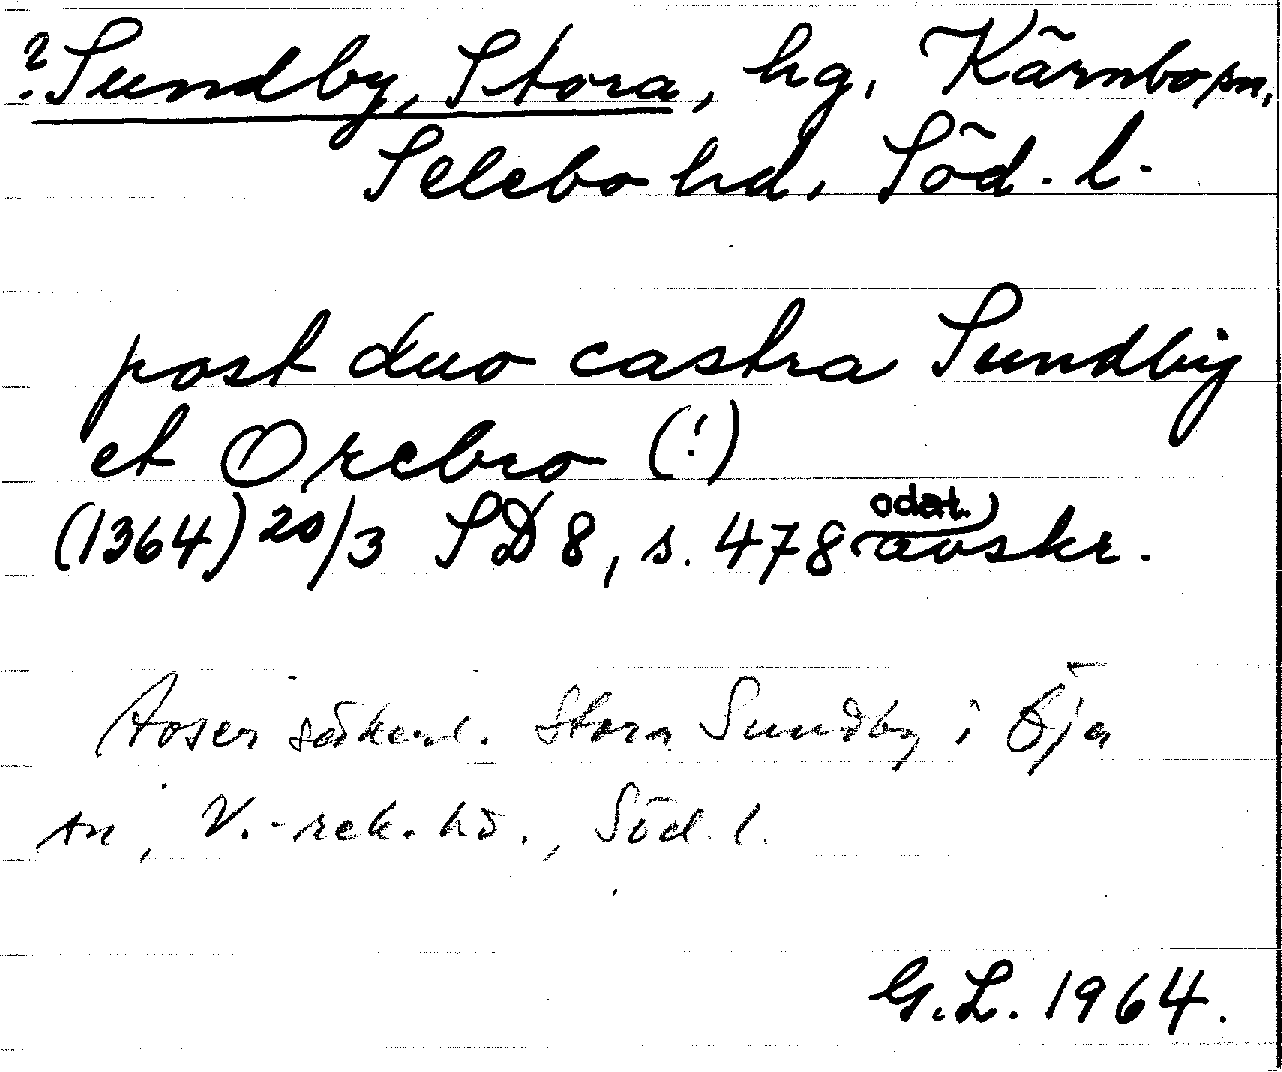 ? Sundby, Stora, hg, Kärnbo sn,
Selebo hd, Söd. l.
post duo castra Sundby
et Orebro (!)
(1364) 20/3 SD 8, s. 478 odat. avskr.
Avser säkerl. Stora Sundby i Öja
sn, V.-rek. hd., Söd. l.
G.L. 1964.